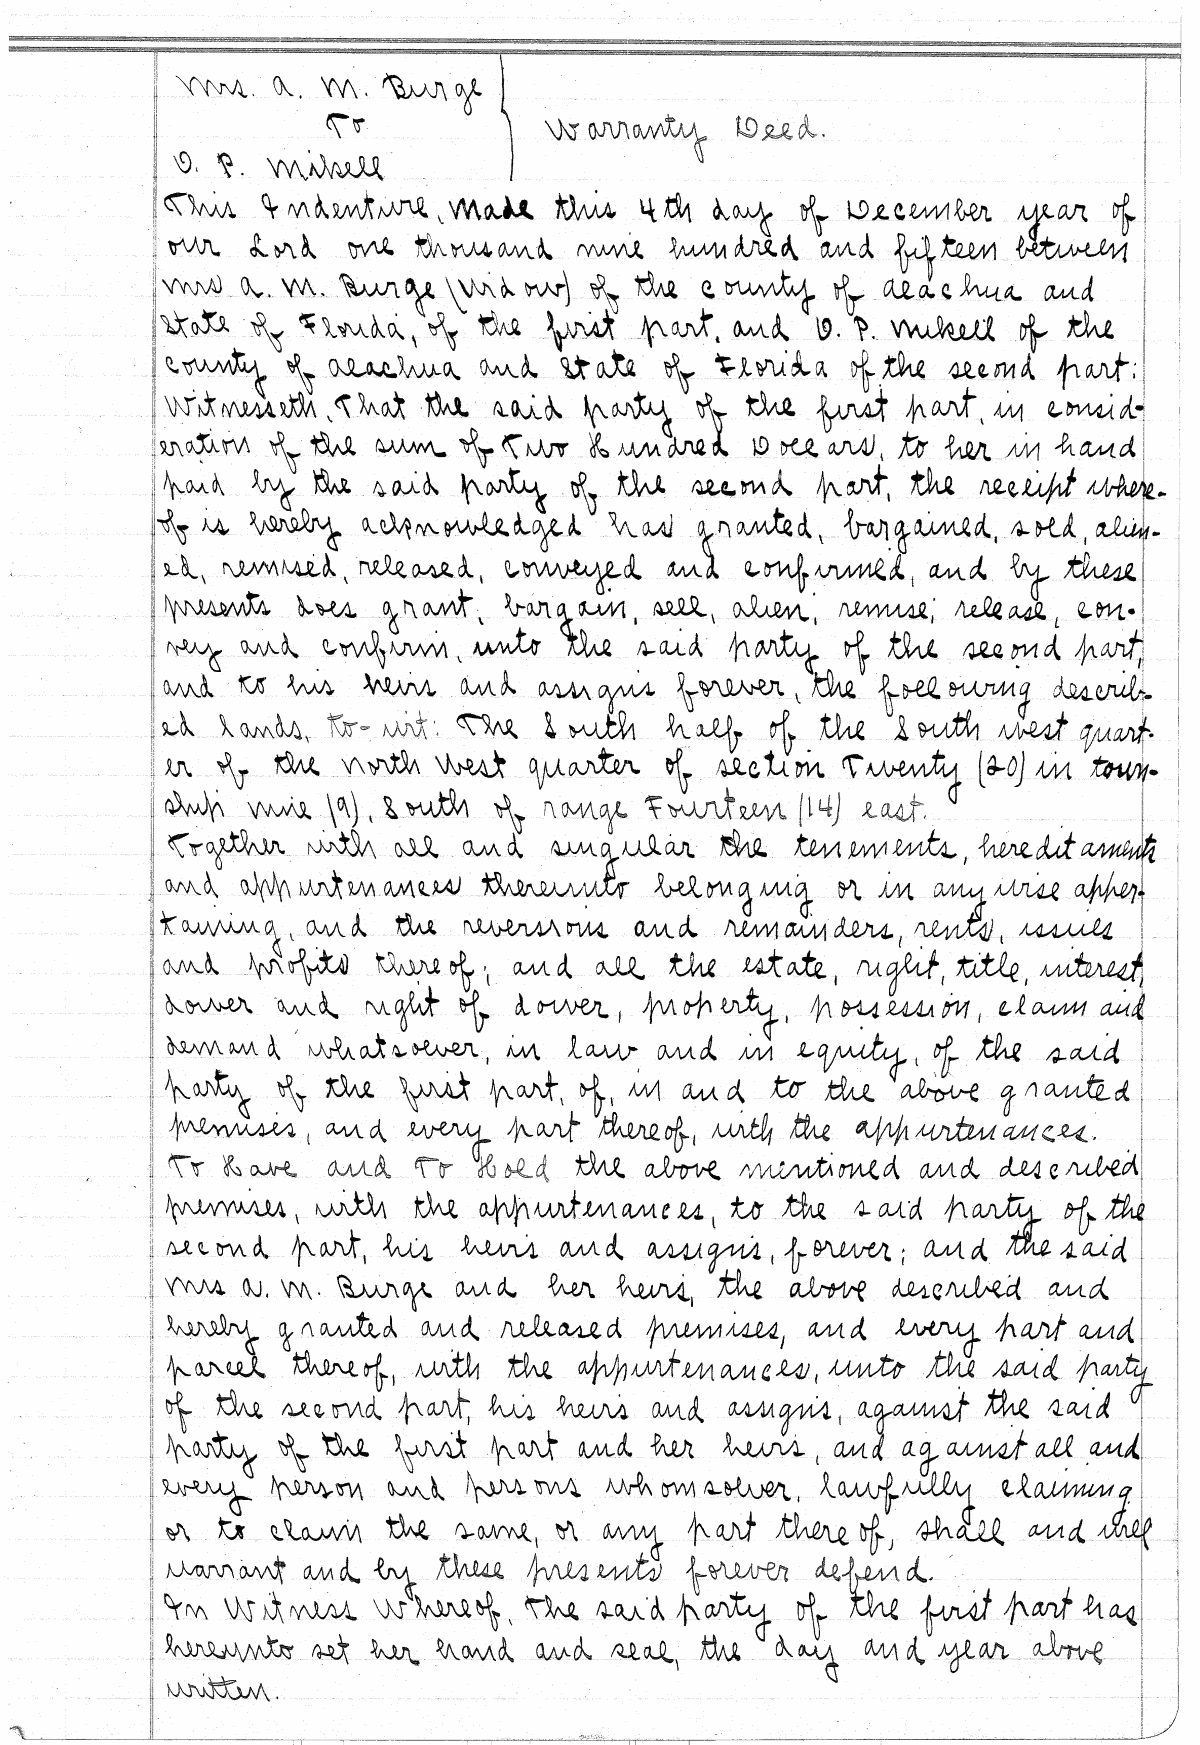 Mrs. A. M. Burge
To
Warranty Deed.
O. P. Mikell
This Indenture, Made this 4th day of December year of
our Lord one thousand nine hundred and fifteen between
Mrs A. M. Burge (Widow) of the county of Alachua and
State of Florida, of the first part, and O. P. Mikell of the
county of Alachua and State of Florida of the second part:
Witnesseth, That the said party of the first part, in consid-
eration of the sum of Two Hundred Dollars, to her in hand
paid by the said party of the second part, the receipt where-
of is hereby acknowledged has granted, bargained, sold, alien-
ed, remised, released, conveyed and confirmed, and by these
presents does grant, bargain, sell, alien, remise, release, con-
vey and confirm, unto the said party of the second part,
and to his heirs and assigns forever, the following describ-
ed lands, to-wit: The South half of the South west quart-
er of the North West quarter of section Twenty (20) in town-
ship nine (9), South of range Fourteen (14) east.
Together with all and singular the tenements, hereditaments
and appurtenances thereunto belonging or in any wise apper-
taining, and the reversions and remainders, rents, issues
and profits thereof; and all the estate, right, title, interest,
dower and right of dower, property, possession, claim and
demand whatsoever, in law and in equity, of the said
party of the first part, of, in and to the above granted
premises, and every part thereof, with the appurtenances.
To Have and To Hold the above mentioned and described
premises, with the appurtenances, to the said party of the
second part, his heirs and assigns, forever; and the said
Mrs A. M. Burge and her heirs, the above described and
hereby granted and released premises, and every part and
parcel thereof, with the appurtenances, unto the said party
of the second part, his heirs and assigns, against the said
party of the first part and her heirs, and against all and
every person and persons whomsolver, lawfully claiming
or to claim the same, or any part there of, shall and will
warrant and by these presents forever defend.
In Witness Whereof, The said party of the first part has
hereunto set her hand and seal, the day and year above
written.